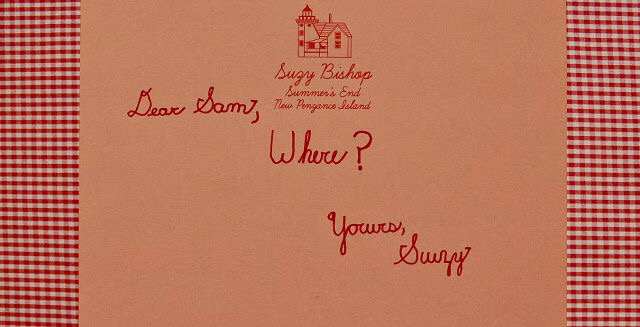 Suzy Bishop
Summer's End
New Pengance Island
Dear Sam,
Where?
Yours,
Suzy